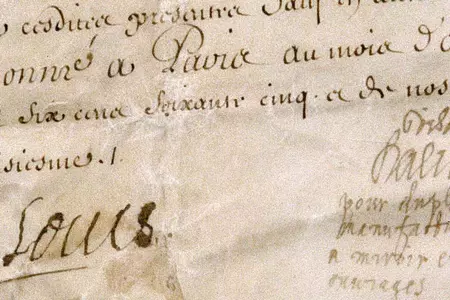 cesdites presentes Sauf en autre
donné a Paris au mois d'o
Six cens Soixante cinq. et de nos
siesme ./.
Louis
pour etabl
manufactu
a miroir e
ouvrages